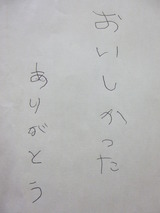 おいしかった
ありがとう